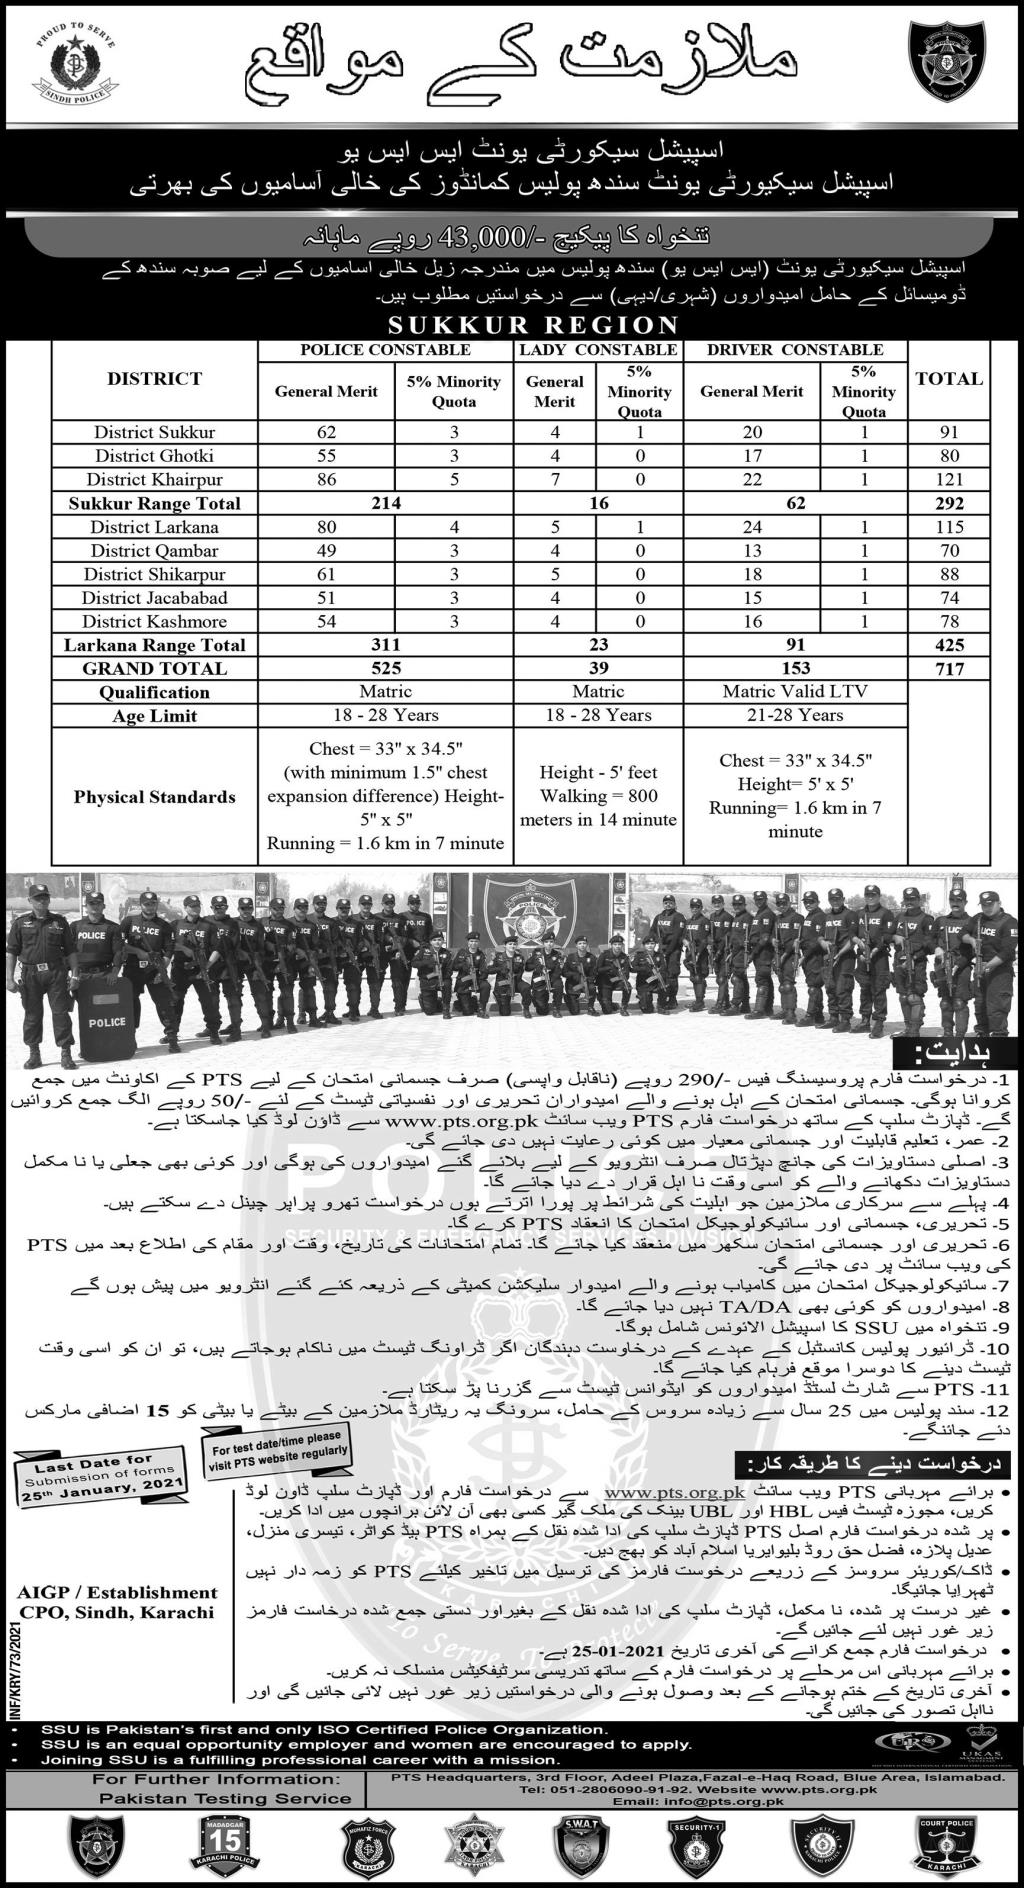 PROUD TO SERVE
SINDH POLICE
ملازمت کے مواقع
اسپیشل سیکورٹی یونٹ ایس ایس یو
اسپیشل سیکیورٹی یونٹ سندھ پولیس کمانڈوز کی خالی آسامیوں کی بھرتی
تنخواہ کا پیکیج -/43,000 روپے ماہانہ
اسپیشل سیکیورٹی یونٹ (ایس ایس یو) سندھ پولیس میں مندرجہ زیل خالی اسامیوں کے لیے صوبہ سندھ کے
ڈومیسائل کے حامل امیدواروں (شہری/دیہی) سے درخواستیں مطلوب ہیں۔
SUKKUR REGION
DISTRICT POLICE CONSTABLE LADY CONSTABLE DRIVER CONSTABLE TOTAL
General Merit 5% Minority Quota General Merit 5% Minority Quota General Merit 5% Minority Quota
District Sukkur 62 3 4 1 20 1 91
District Ghotki 55 3 4 0 17 1 80
District Khairpur 86 5 7 0 22 1 121
Sukkur Range Total 214 16 62 292
District Larkana 80 4 5 1 24 1 115
District Qambar 49 3 4 0 13 1 70
District Shikarpur 61 3 5 0 18 1 88
District Jacababad 51 3 4 0 15 1 74
District Kashmore 54 3 4 0 16 1 78
Larkana Range Total 311 23 91 425
GRAND TOTAL 525 39 153 717
Qualification Matric Matric Matric Valid LTV
Age Limit 18 - 28 Years 18 - 28 Years 21-28 Years
Physical Standards
Chest = 33" x 34.5"
(with minimum 1.5" chest
expansion difference) Height-
5" x 5"
Running = 1.6 km in 7 minute
Height - 5' feet
Walking = 800
meters in 14 minute
Chest = 33" x 34.5"
Height= 5' x 5'
Running= 1.6 km in 7
minute
POLICE
POLICE
POLICE
ہدایت:
1- درخواست فارم پروسیسنگ فیس -/290 روپے (ناقابل واپسی) صرف جسمانی امتحان کے لیے PTS کے اکاونٹ میں جمع
کروانا ہوگی۔ جسمانی امتحان کے اہل ہونے والے امیدواران تحریری اور نفسیاتی ٹیسٹ کے لئے -/50 روپے الگ جمع کروائیں
گے۔ ڈپازٹ سلپ کے ساتھ درخواست فارم PTS ویب سائٹ www.pts.org.pk سے ڈاؤن لوڈ کیا جاسکتا ہے۔
2- عمر، تعلیم قابلیت اور جسمانی معیار میں کوئی رعایت نہیں دی جائے گی۔
3- اصلی دستاویزات کی جانچ دپڑتال صرف انٹرویو کے لیے بلائے گئے امیدواروں کی ہوگی اور کوئی بھی جعلی یا نا مکمل
دستاویزات دکھانے والے کو اسی وقت نا اہل قرار دے دیا جائے گا۔
4- پہلے سے سرکاری ملازمین جو اہلیت کی شرائط پر پورا اترتے ہوں درخواست تھرو پراپر چینل دے سکتے ہیں۔
5- تحریری، جسمانی اور سائیکولوجیکل امتحان کا انعقاد PTS کرے گا۔
6- تحریری اور جسمانی امتحان سکھر میں منعقد کیا جائے گا۔ تمام امتحانات کی تاریخ، وقت اور مقام کی اطلاع بعد میں PTS
کی ویب سائٹ پر دی جائے گی۔
7- سائیکولوجیکل امتحان میں کامیاب ہونے والے امیدوار سلیکشن کمیٹی کے ذریعہ کئے گئے انٹرویو میں پیش ہوں گے
8- امیدواروں کو کوئی بھی TA/DA نہیں دیا جائے گا۔
9- تنخواہ میں SSU کا اسپیشل الائونس شامل ہوگا۔
10- ڈرائیور پولیس کانسٹبل کے عہدے کے درخاوست دہندگان اگر ڈراونگ ٹیسٹ میں ناکام ہوجاتے ہیں، تو ان کو اسی وقت
ٹیسٹ دینے کا دوسرا موقع فرہام کیا جائے گا۔
11- PTS سے شارٹ لسٹڈ امیدواروں کو ایڈوانس ٹیسٹ سے گزرنا پڑ سکتا ہے۔
12- سند پولیس میں 25 سال سے زیادہ سروس کے حامل، سرونگ یہ ریٹارڈ ملازمین کے بیٹے یا بیٹی کو 15 اضافی مارکس
دئے جائنگے۔
POLICE
SECURITY & EMERGENCY SERVICES DIVISION
KARACHI
"To Serve, To Protect"
Last Date for
Submission of forms
25th January, 2021
For test date/time please
visit PTS website regularly
درخواست دینے کا طریقہ کار:
• برائے مہربانی PTS ویب سائٹ www.pts.org.pk سے درخواست فارم اور ڈپازٹ سلپ ڈاون لوڈ
کریں، مجوزہ ٹیسٹ فیس HBL اور UBL بینک کی ملک گیر کسی بھی آن لائن برانچوں میں ادا کریں۔
• پر شدہ درخواست فارم اصل PTS ڈپازٹ سلپ کی ادا شدہ نقل کے ہمراہ PTS ہیڈ کوائٹر، تیسری منزل،
عدیل پلازہ، فضل حق روڈ بلیوایریا اسلام آباد کو بھج دیں۔
• ڈاک/کوریئر سروسز کے زریعے درخوست فارمز کی ترسیل میں تاخیر کیلئے PTS کو زمہ دار نہیں
ٹھہرایا جائیگا۔
• غیر درست پر شدہ، نا مکمل، ڈپازٹ سلپ کی ادا شدہ نقل کے بغیراور دستی جمع شدہ درخاست فارمز
زیر غور نہیں لئے جائیں گے۔
• درخواست فارم جمع کرانے کی آخری تاریخ 25-01-2021 ہے۔
• برائے مہربانی اس مرحلے پر درخواست فارم کے ساتھ تدریسی سرٹیفکیٹس منسلک نہ کریں۔
• آخری تاریخ کے ختم ہوجانے کے بعد وصول ہونے والی درخواستیں زیر غور نہیں لائی جائیں گی اور
نااہل تصور کی جائیں گی۔
AIGP / Establishment
CPO, Sindh, Karachi
INF/KRY/73/2021
• SSU is Pakistan's first and only ISO Certified Police Organization.
• SSU is an equal opportunity employer and women are encouraged to apply.
• Joining SSU is a fulfilling professional career with a mission.
URS
UKAS
MANAGEMENT
SYSTEMS
For Further Information:
Pakistan Testing Service
PTS Headquarters, 3rd Floor, Adeel Plaza,Fazal-e-Haq Road, Blue Area, Islamabad.
Tel: 051-2806090-91-92. Website www.pts.org.pk
Email: info@pts.org.pk
MADADGAR
15
KARACHI POLICE
MUHAFIZ FORCE
KARACHI
S.W.A.T
SECURITY-1
COURT POLICE
KARACHI